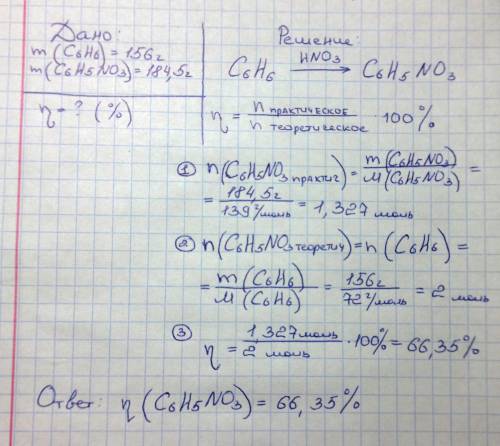 Дано:
m (C6H6) = 156г
m(C6H5NO3) = 184,5г
η - ? (%)
Решение:
C6H6 HNO3 → C6H5NO3
η = n практическое / n теоретическое · 100%
① n(C6H5NO3 практич) = m(C6H5NO3) / M(C6H5NO3) =
= 184,5г / 139 г/моль = 1,327 моль
② n(C6H5NO3 теоретич) = n(C6H6) =
= m(C6H6) / M(C6H6) = 156г / 72 г/моль = 2 моль
③ η = 1,327моль / 2 моль · 100% = 66,35%
Ответ: η(C6H5NO3) = 66,35%